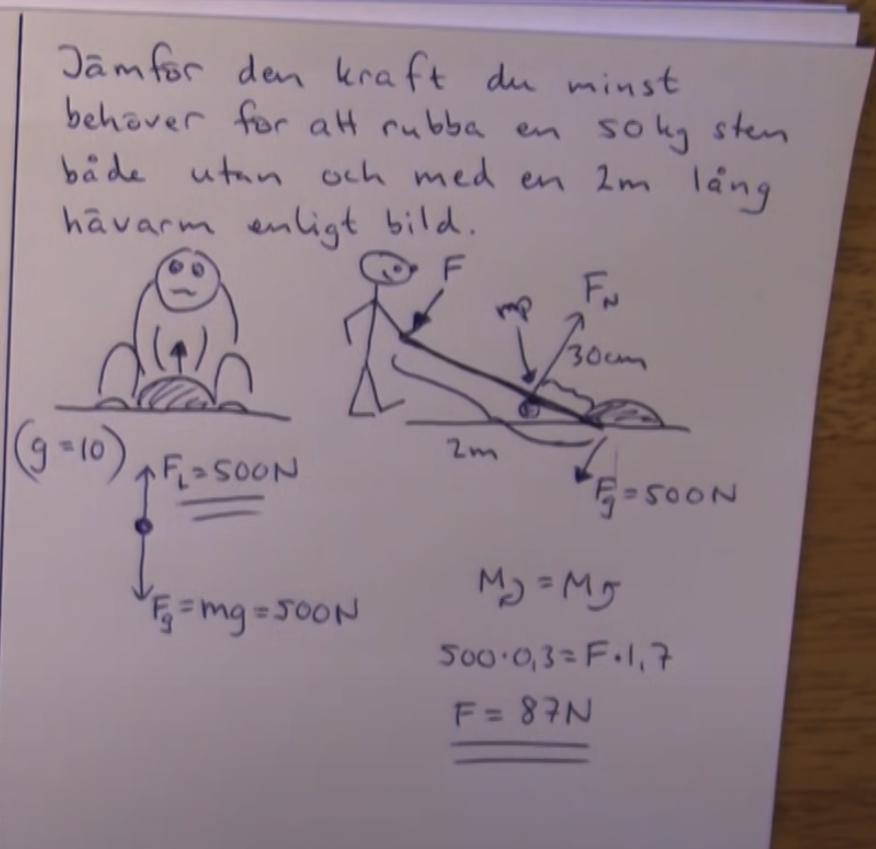 Jämför den kraft du minst
behöver för att rubba en 50kg sten
både utan och med en 2m lång
hävarm enligt bild.
F
mp
F_N
30cm
(g=10)
2m
F_L=500N
F_g=500N
F_g=mg=500N
M↻=M↺
500·0,3=F·1,7
F=87N